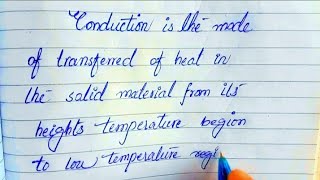 Conduction is the mode
of transferred of heal in
the solid material from its
heights temperature begion
to low temperature regi